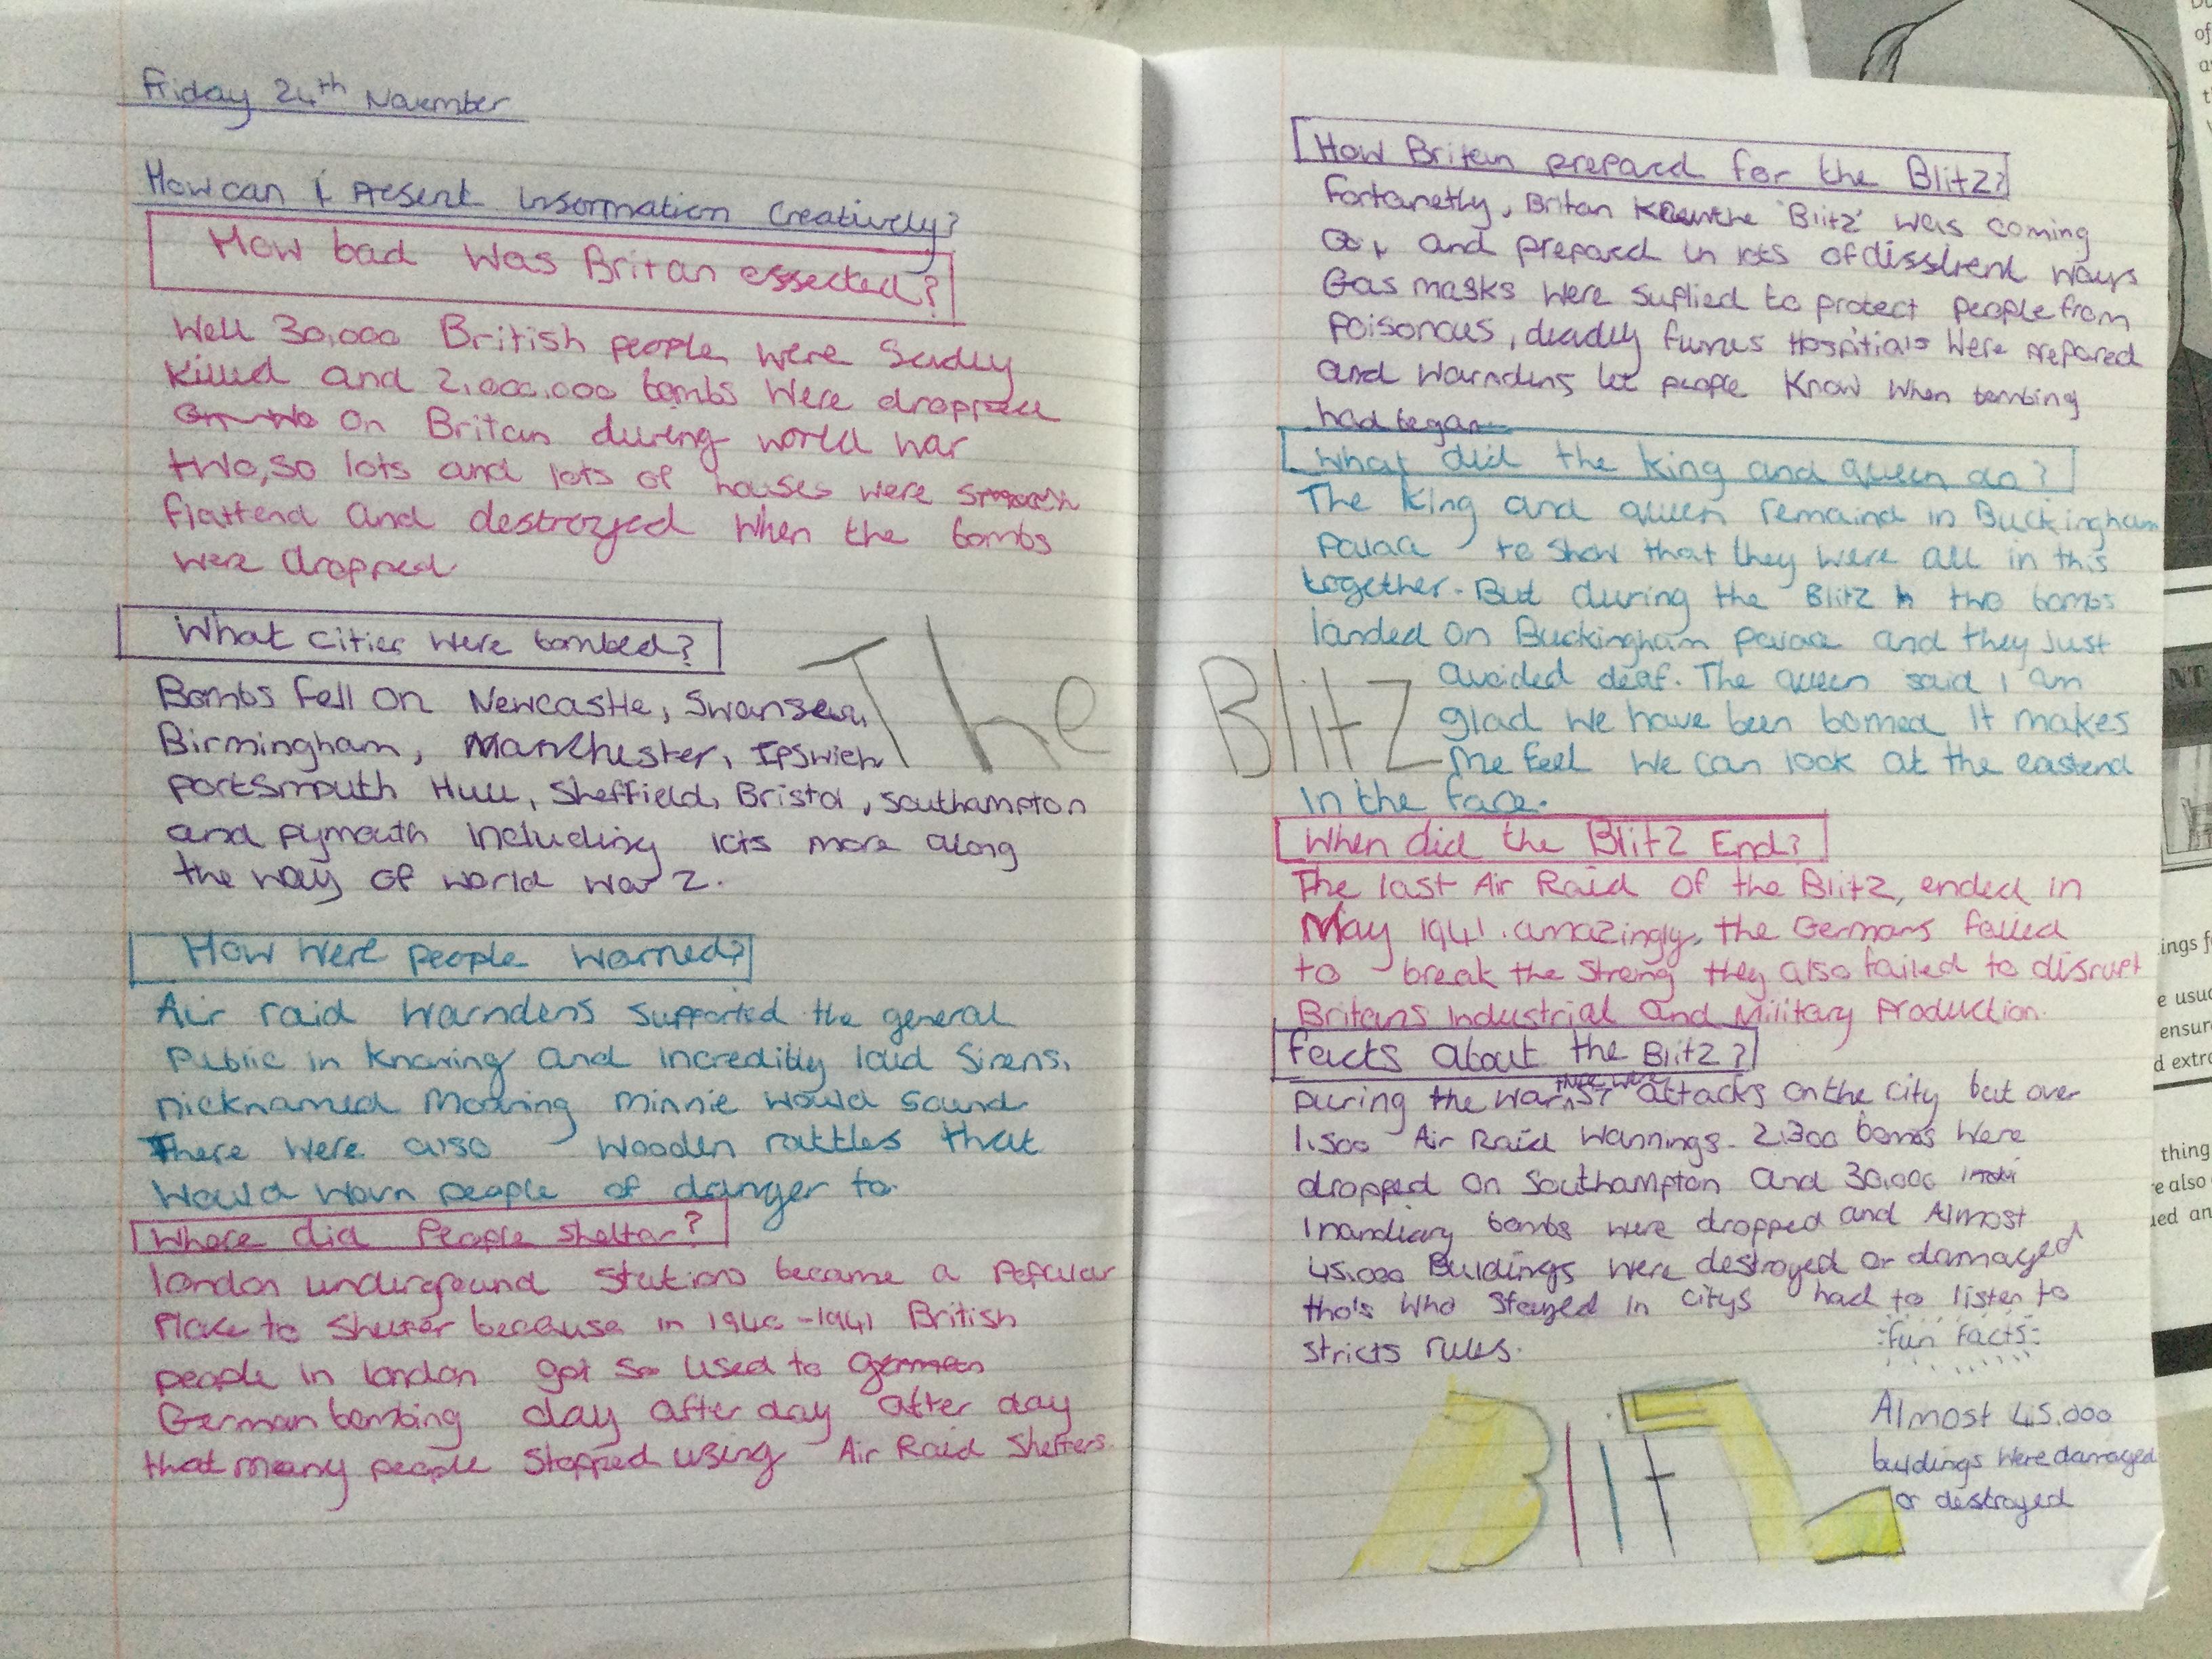 Friday 24th November
How can I Present Information Creatively?
How bad was Britan essected?
Well 30,000 British people were sadly
killed and 2,000,000 bombs were dropped
on Britan during world war
two, so lots and lots of houses were
flattend and destroyed when the bombs
were dropped
What cities were bombed?
Bombs fell on Newcastle, Swansea,
Birmingham, Manchester, Ipswich
portsmouth Hull, Sheffield, Bristol, southampton
and plymouth including lots more along
the way of world war 2.
How were people warned?
Air raid warndens supported the general
Public in knowing and incredibly loud sirens,
nicknamed Moaning Minnie would sound
There were also wooden rattles that
would warn people of danger to.
Where did People shelter?
london underground stations became a Popular
Place to shelter because in 1940-1941 British
people in london got so used to
German bombing day after day after day
that many people stopped using Air Raid Shelters
The Blitz
How Britan prepared for the Blitz?
Fortunetly, Britan knew the 'Blitz' was coming
and prepared in lots of dissirent ways
Gas masks were suplied to protect people from
poisonous, deadly fumes Hospitials were prepared
and warndens let people know when bombing
had began
What did the king and queen do?
The King and queen remaind in Buckingham
palace to show that they were all in this
together. But during the Blitz two bombs
landed on Buckingham palace and they just
avoided deaf. The queen said I am
glad we have been bomed It makes
me feel we can look at the eastend
in the face.
When did the Blitz End?
The last Air Raid of the Blitz, ended in
May 1941. amazingly, the Germans failed
to break the streng they also failed to disrupt
Britans Industrial and Military Production.
Facts about the Blitz?
During the war there were 57 attacks on the city but over
1,500 Air Raid Warnings. 2,300 bombs were
dropped on Southampton and 30,000
Inandiary bombs were dropped and Almost
45,000 Buildings were destroyed or damaged
tho's who stayed in citys had to listen to
stricts rules.
fun facts
Almost 45,000
buildings were damaged
or destroyed
Blitz